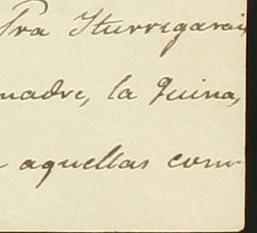 Pra Iturrigarai
madre, la Quina,
aquellas com-